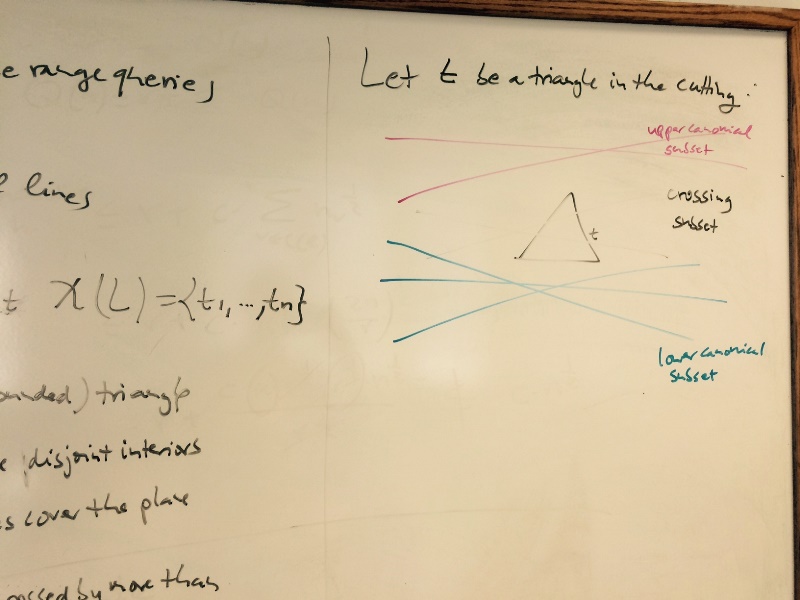 e range queries
lines
X(L)={t1,...,tn}
ounded) triangle
disjoint interiors
s cover the plane
ossed by more than
Let t be a triangle in the cutting:
upper canonical
subset
crossing
subset
t
lower canonical
subset